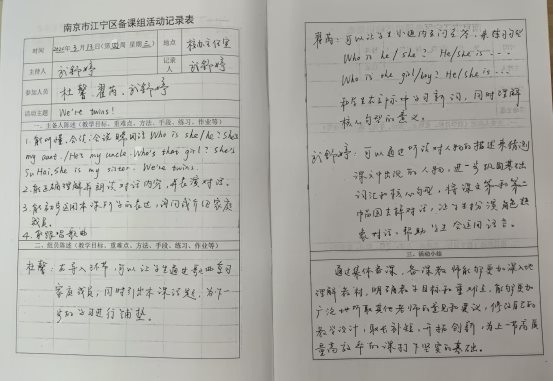 南京市江宁区备课组活动记录表
时间 2021年3月17日(第 周 星期三) 地点
主持人 记录人
参加人员 杜馨 翟芮
活动主题 We're twins!
一、主备人陈述(教学目标、重难点、方法、手段、练习、作业等)
1.能听懂,会读,会说 Who is she/he? She's
my aunt./He's my uncle. Who's that girl? She's
Su Hai, she is my sister. We're twins.
2.能正确理解并朗读对话内容,并表演对话。
3.能初步运用本课所学的表达,询问或介绍家庭
成员。
4.能跟唱歌曲
二、组员陈述(教学目标、重难点、方法、手段、练习、作业等)
杜馨:在导入环节,可以让学生通过歌曲复习
家庭成员,同时引出本课话题,为下一
步的学习进行铺垫。
翟芮:可以让学生小组内互问互答,来练习句型
Who is he/she? He/she is...
Who is the girl/boy? He/she is...
核心句型的意义。
可以通过听读对人物的描述来猜测
课文中出现的人物,进一步巩固基础
词汇和核心句型,将课文第一和第二
幅图去掉对话,让学生扮演角色想
象对话,帮助学生会运用语言。
三、活动小结
通过集体备课,各课教师能够更加深入地
理解教材,明确教学目标和重难点,能够更加
广泛地听取其他老师的意见和建议,修改自己的
教学设计,取长补短,开拓创新,为上一节高质
量高效率的课打下坚实的基础。